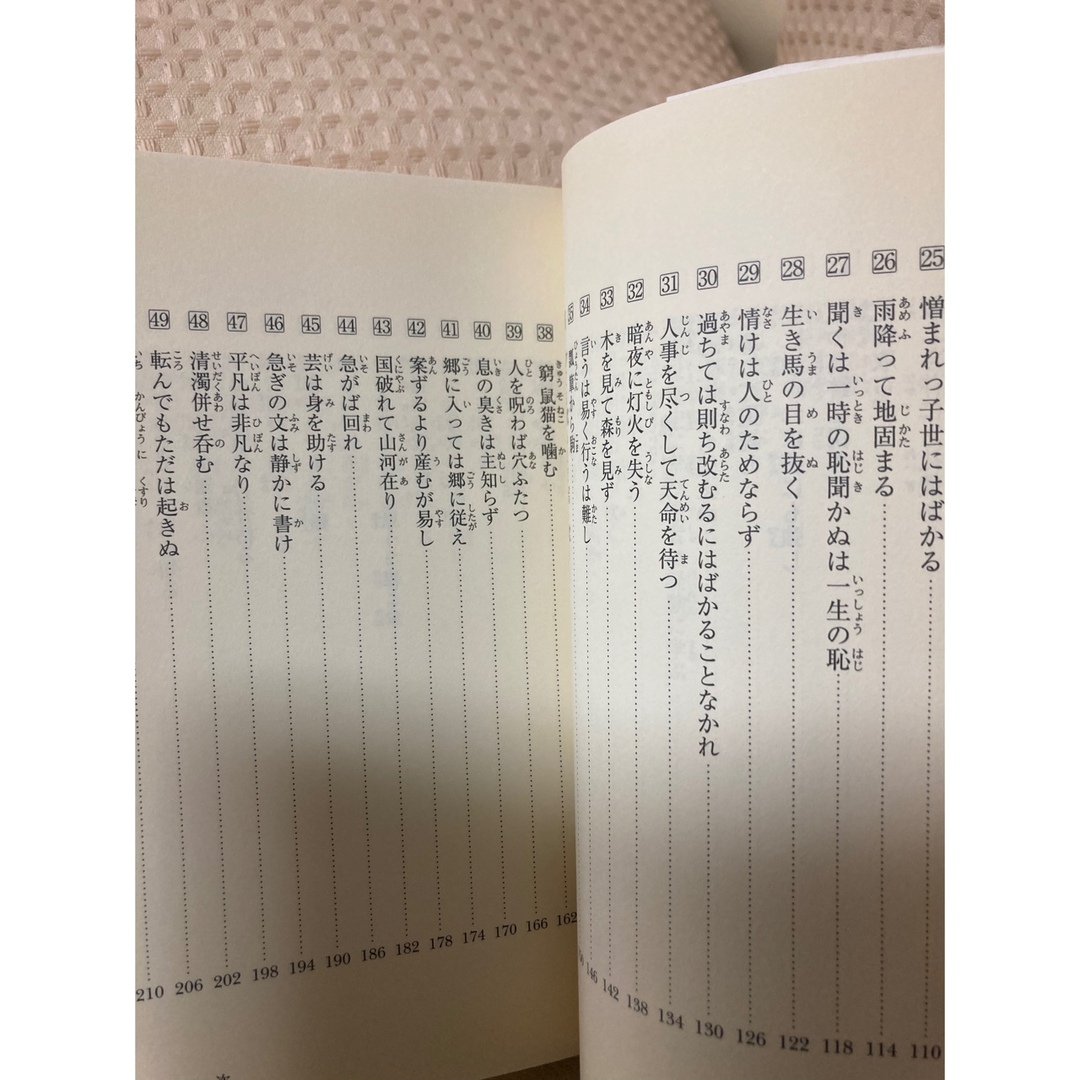 25 憎まれっ子世にはばかる 110
26 雨降って地固まる 114
27 聞くは一時の恥聞かぬは一生の恥 118
28 生き馬の目を抜く 122
29 情けは人のためならず 126
30 過ちては則ち改むるにはばかることなかれ 130
31 人事を尽くして天命を待つ 134
32 暗夜に灯火を失う 138
33 木を見て森を見ず 142
34 言うは易く行うは難し 146
35
38 窮鼠猫を噛む 162
39 人を呪わば穴ふたつ 166
40 息の臭きは主知らず 170
41 郷に入っては郷に従え 174
42 案ずるより産むが易し 178
43 国破れて山河在り 182
44 急がば回れ 186
45 芸は身を助ける 190
46 急ぎの文は静かに書け 194
47 平凡は非凡なり 198
48 清濁併せ呑む 202
49 転んでもただは起きぬ 206
210